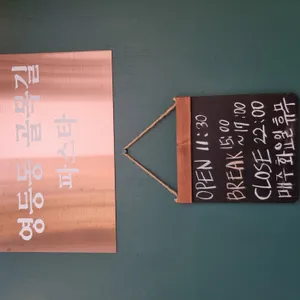 영등동 골목길
파스타
OPEN 11:30
BREAK 15:00
~17:00
CLOSE 22:00
매주 화요일 휴무